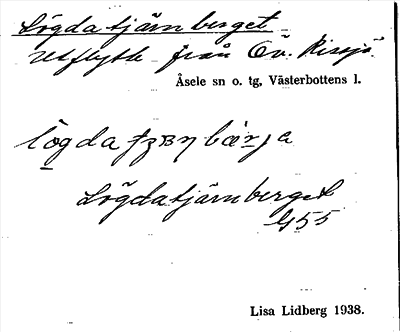 Lögdatjärnberget
utflytt från Öv. Rissjö.
Åsele sn o. tg, Västerbottens l.
Lögdatjärnberget
Lisa Lidberg 1938.